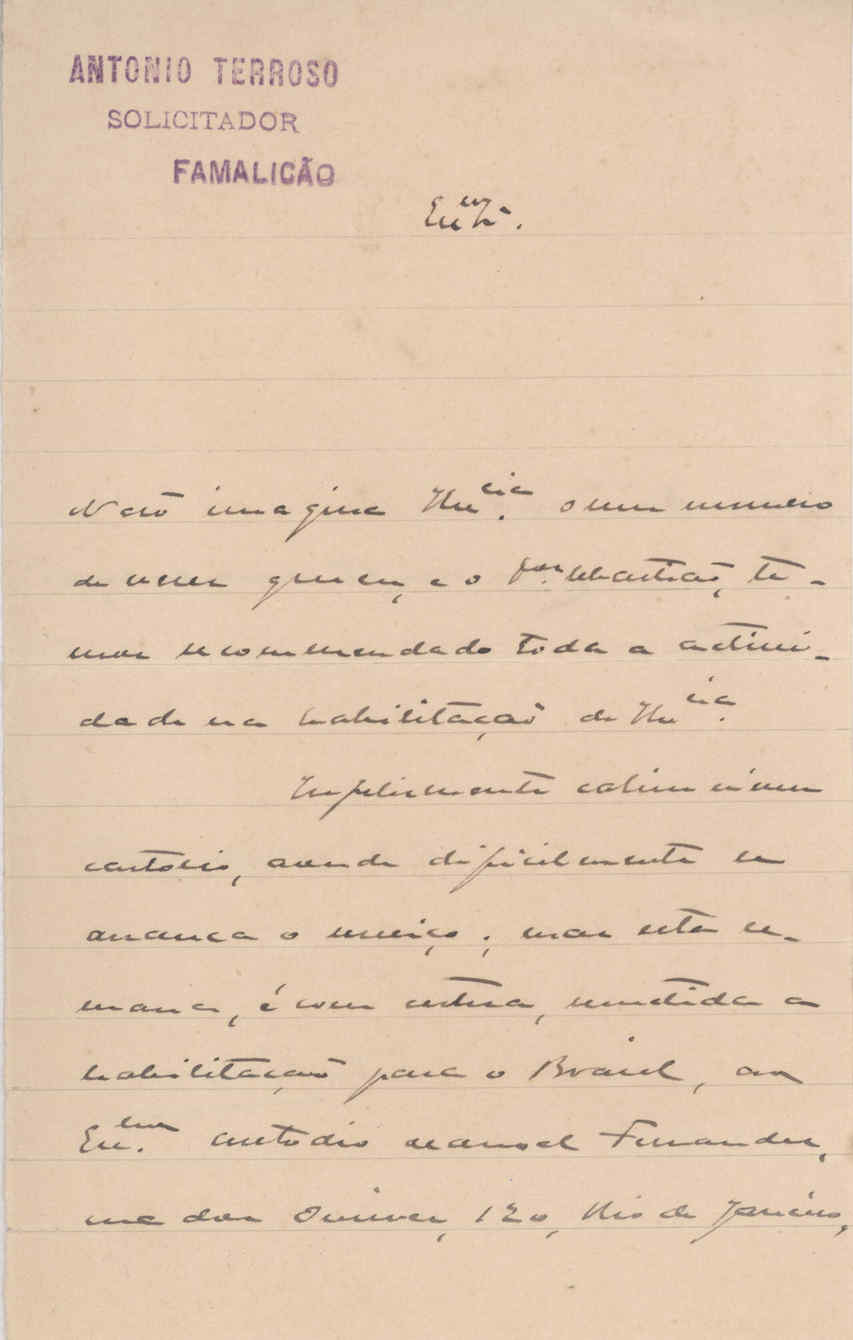 ANTONIO TERROSO
SOLICITADOR
FAMALICÃO
Não imagina o sem numero
de vezes que eu, e o Sebastião, te-
mos recommendado toda a activi-
dade na habilitação de
Infelizmente cahiu n'um
cartorio, aonde dificilmente se
arranca o serviço; mas esta se-
mana, é com certeza, remetida a
habilitação para o Brasil, ao
Custodio Manoel Fernandes,
rua dos Ourives, 120, Rio de Janeiro,